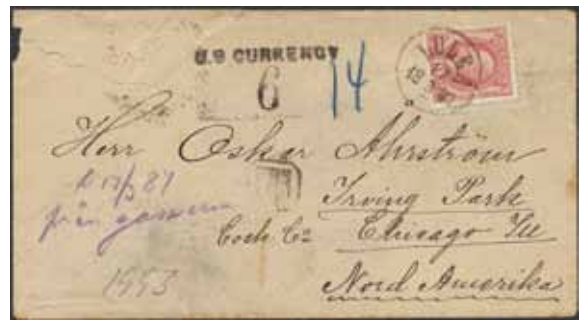 U.S CURRENCY
6
14
LULE
18
Herr Oskar Ahrström
Irving Park
Cook Co Chicago Ill
Nord Amerika
från
1993